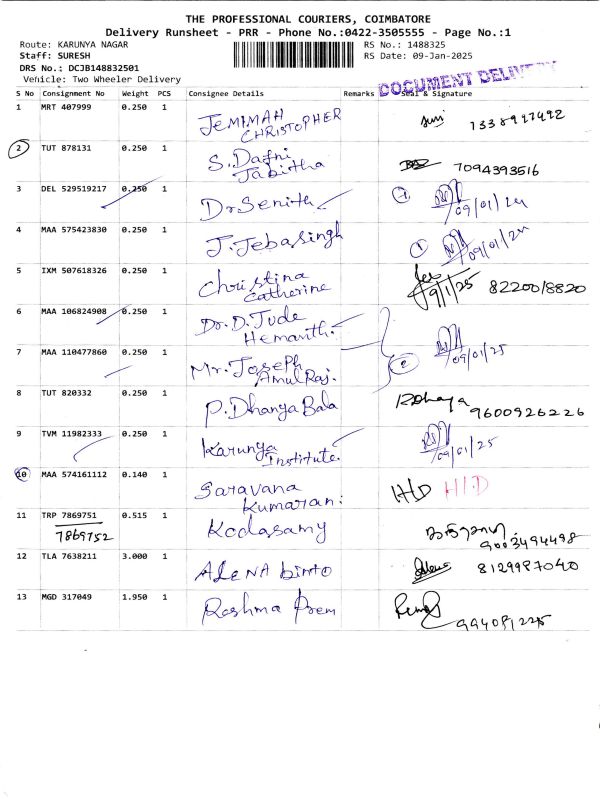 THE PROFESSIONAL COURIERS, COIMBATORE
Delivery Runsheet - PRR - Phone No.:0422-3505555 - Page No.:1
Route: KARUNYA NAGAR
RS No.: 1488325
Staff: SURESH
RS Date: 09-Jan-2025
DRS No.: DCJB148832501
Vehicle: Two Wheeler Delivery
DOCUMENT DELIVERY
S No Consignment No Weight PCS Consignee Details Remarks Seal & Signature
1 MRT 407999 0.250 1 JEMIMAH CHRISTOPHER
2 TUT 878131 0.250 1 S. Dafni Jabitha 7094393516
3 DEL 529519217 0.250 1 Dr Senith 09/01/24
4 MAA 575423830 0.250 1 J. Jebasingh 09/01/24
5 IXM 507618326 0.250 1 Christina Catherine 9/1/25 8220018820
6 MAA 106824908 0.250 1 Dr. D. Jude Hemanth.
7 MAA 110477860 0.250 1 Mr. Joseph Amul Raj. 2 09/01/25
8 TUT 820332 0.250 1 P. Dhanya Bala RDhaya 9600926226
9 TVM 11982333 0.250 1 Karunya Institute. 09/01/25
10 MAA 574161112 0.140 1 Saravana Kumaran: H.D
11 TRP 7869751 0.515 1 Kodasamy 9003494498
7869752
12 TLA 7638211 3.000 1 ALENA binto 8129987040
13 MGD 317049 1.950 1 Reshma Prem